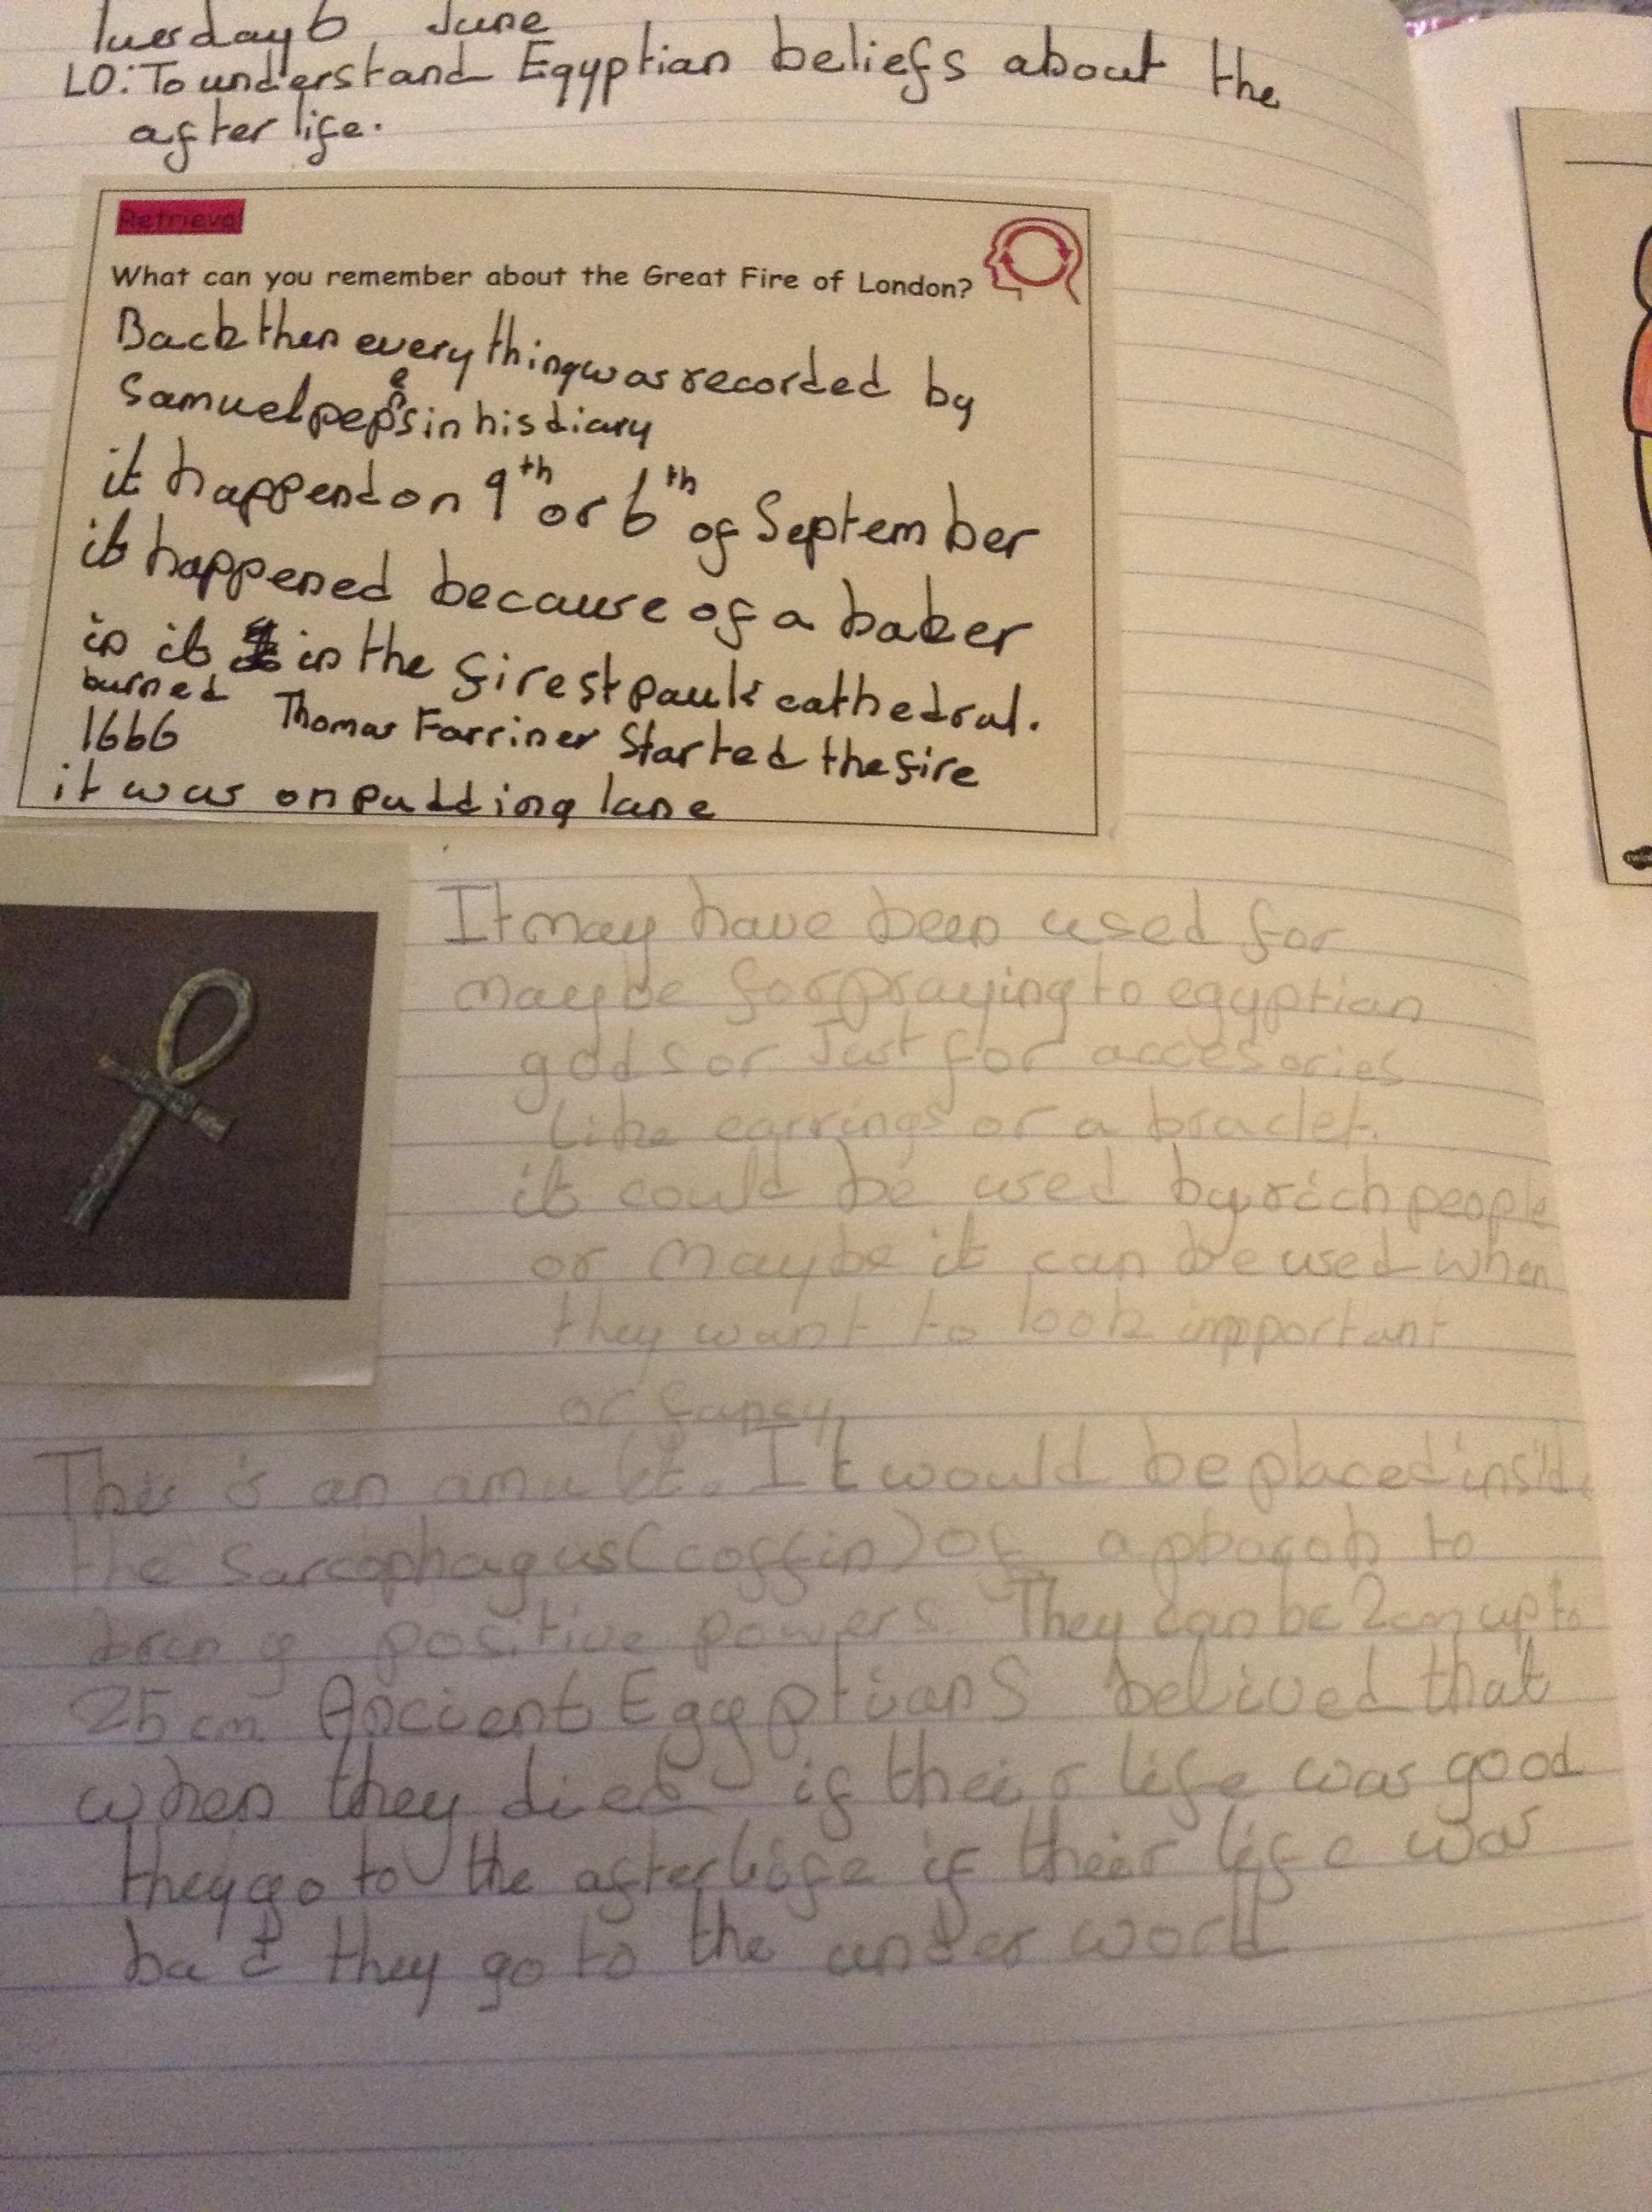 Tuesday 6 June
LO: To understand Egyptian beliefs about the
afterlife.
Retrieval
What can you remember about the Great Fire of London?
Back then everything was recorded by
Samuel pepes in his diary
it happend on 9th or 6th of September
it happened because of a baker
in it in the fire st pauls cathedral.
burned Thomas Farriner Started the fire
1666
it was on pudding lane
It may have been used for
maybe for praying to egyptian
gods or Just for accesories
like earrings or a braclet.
it could be used by rich people
or maybe it can be used when
they want to look important
or fancy,
This is an amulet. It would be placed inside
the Sarcophagus (coffin) of a pharoh to
bring positive powers. They can be 2cm up to
25cm Ancient Egyptians belived that
when they died if their life was good
they go to the afterlife if their life was
bad they go to the under world